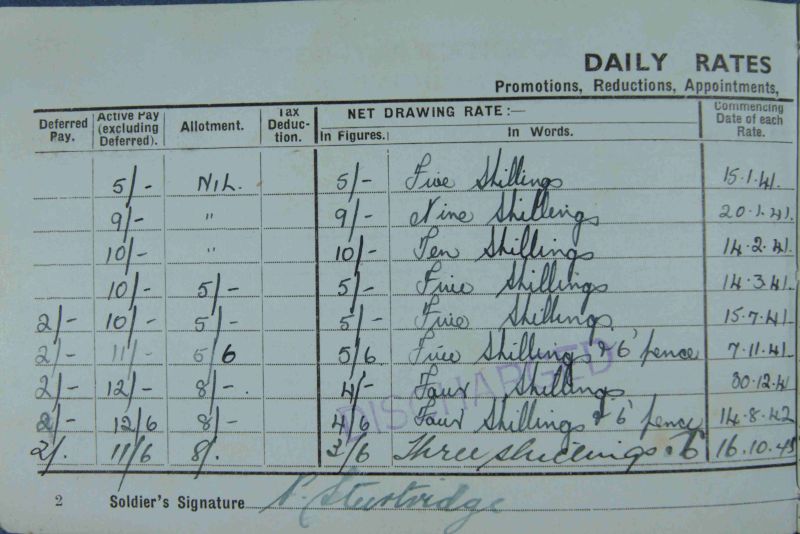 DAILY RATES
Promotions, Reductions, Appointments,
Deferred Pay. Active Pay (excluding Deferred). Allotment. Tax Deduc-tion. NET DRAWING RATE:— In Figures. In Words. Commencing Date of each Rate.
5/- NIL. 5/- Five Shillings 15.1.41.
9/- " 9/- Nine Shillings 20.1.41.
10/- " 10/- Ten Shillings 14.2.41.
10/- 5/- 5/- Five Shillings 14.3.41.
2/- 10/- 5/- 5/- Five Shillings 15.7.41
2/- 11/- 5/6 5/6 Five Shillings & 6' pence 7.11.41
2/- 12/- 8/- 4/- Four Shillings 30.12.4
2/- 12/6 8/- 4/6 Four Shillings & 6' pence 14.8.42
2/. 11/6 8/. 3/6 Three shillings . 6 16.10.45
DISCHARGED
2 Soldier's Signature Sturtridge